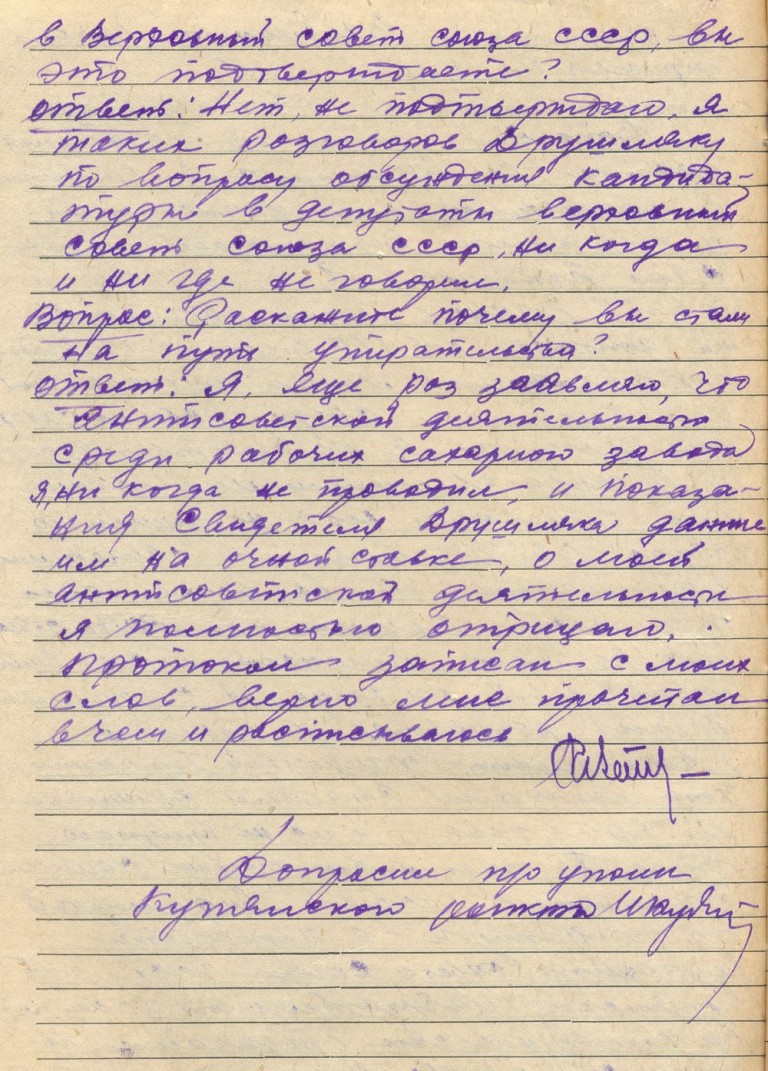 в Верховный совет союза ссср, вы
это подтверждаете?
ответ: Нет, не подтверждаю, я
таких розговоров Друшляку
по вопросу обсуждения кандида-
туры в депутаты верховный
совет союза ссср, ни когда
и ни где не говорил.
Вопрос: Раскажите почему вы стали
на путь упирательства?
ответ: Я, еще роз заявляю, что
антисоветской деятельности
среди рабочих сахарного завода
я, ни когда не проводил, и показа-
ния Свидетеля Друшляка данные
им на очной ставке, о моей
антисоветской деятельности
я полностью отрицаю.
Протокол записан с моих
слов, верно мне прочетан
в чем и росписываюсь
Допросил